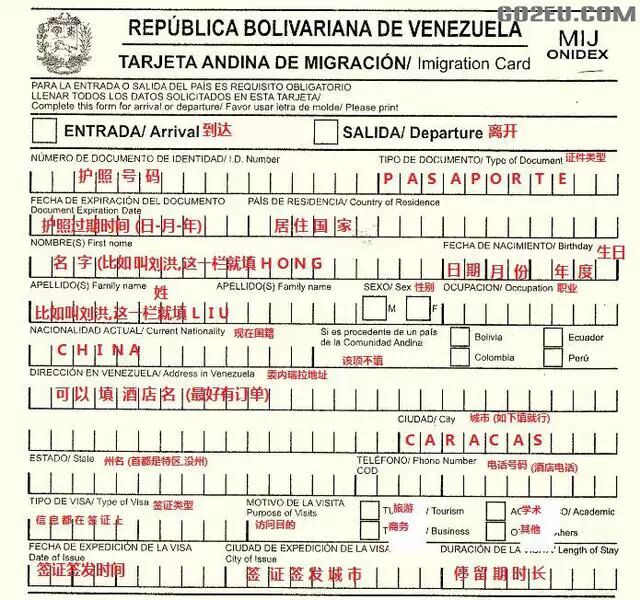 GO2EU.COM
REPÚBLICA BOLIVARIANA DE VENEZUELA
MIJ
ONIDEX
TARJETA ANDINA DE MIGRACIÓN/ Imigration Card
PARA LA ENTRADA O SALIDA DEL PAÍS ES REQUISITO OBLIGATORIO
LLENAR TODOS LOS DATOS SOLICITADOS EN ESTA TARJETA/
Complete this form for arrival or departure/ Favor usar letra de molde/ Please print
ENTRADA/ Arrival 到达 SALIDA/ Departure 离开
NÚMERO DE DOCUMENTO DE IDENTIDAD/ I.D. Number TIPO DE DOCUMENTO/ Type of Document 证件类型
护照号码 PASAPORTE
FECHA DE EXPIRACIÓN DEL DOCUMENTO PAÍS DE RESIDENCIA/ Country of Residence
Document Expiration Date
护照过期时间 (日-月-年) 居住国家
NOMBRE(S) First name FECHA DE NACIMIENTO/ Birthday 生日
名字(比如叫刘洪,这一栏就填HONG 日期月份 年度
APELLIDO(S) Family name 姓 APELLIDO(S) Family name SEXO/ Sex 性别 OCUPACION/ Occupation 职业
比如叫刘洪,这一栏就填LIU M F
NACIONALIDAD ACTUAL/ Current Nationality 现在国籍 Si es procedente de un país
de la Comunidad Andina Bolivia Ecuador
CHINA 该项不填 Colombia Perú
DIRECCIÓN EN VENEZUELA/ Address in Venezuela 委内瑞拉地址
可以填酒店名(最好有订单)
CIUDAD/ City 城市 (如下填就行)
CARACAS
ESTADO/ State 州名 (首都是特区,没州) TELÉFONO/ Phone Number 电话号码 (酒店电话)
COD
TIPO DE VISA/ Type of Visa 签证类型 MOTIVO DE LA VISITA
Purpose of Visits
TU旅游/ Tourism AC学术/ Academic
信息都在签证上 访问目的 T商务/ Business O其他hers
FECHA DE EXPEDICIÓN DE LA VISA CIUDAD DE EXPEDICIÓN DE LA VISA DURACIÓN DE LA VISITA/ Length of Stay
Date of Issue City of Issue
签证签发时间 签证签发城市 停留期时长